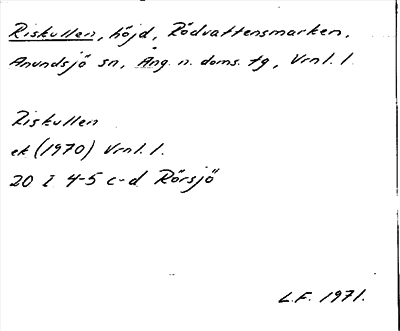 Riskullen, höjd, Rödvattensmarken,
Anundsjö sn, Ång. n. doms. tg, Vrnl. l.
Riskullen
ek (1970) Vrnl. l.
20 I 4-5 c-d Rörsjö
L.F. 1971.